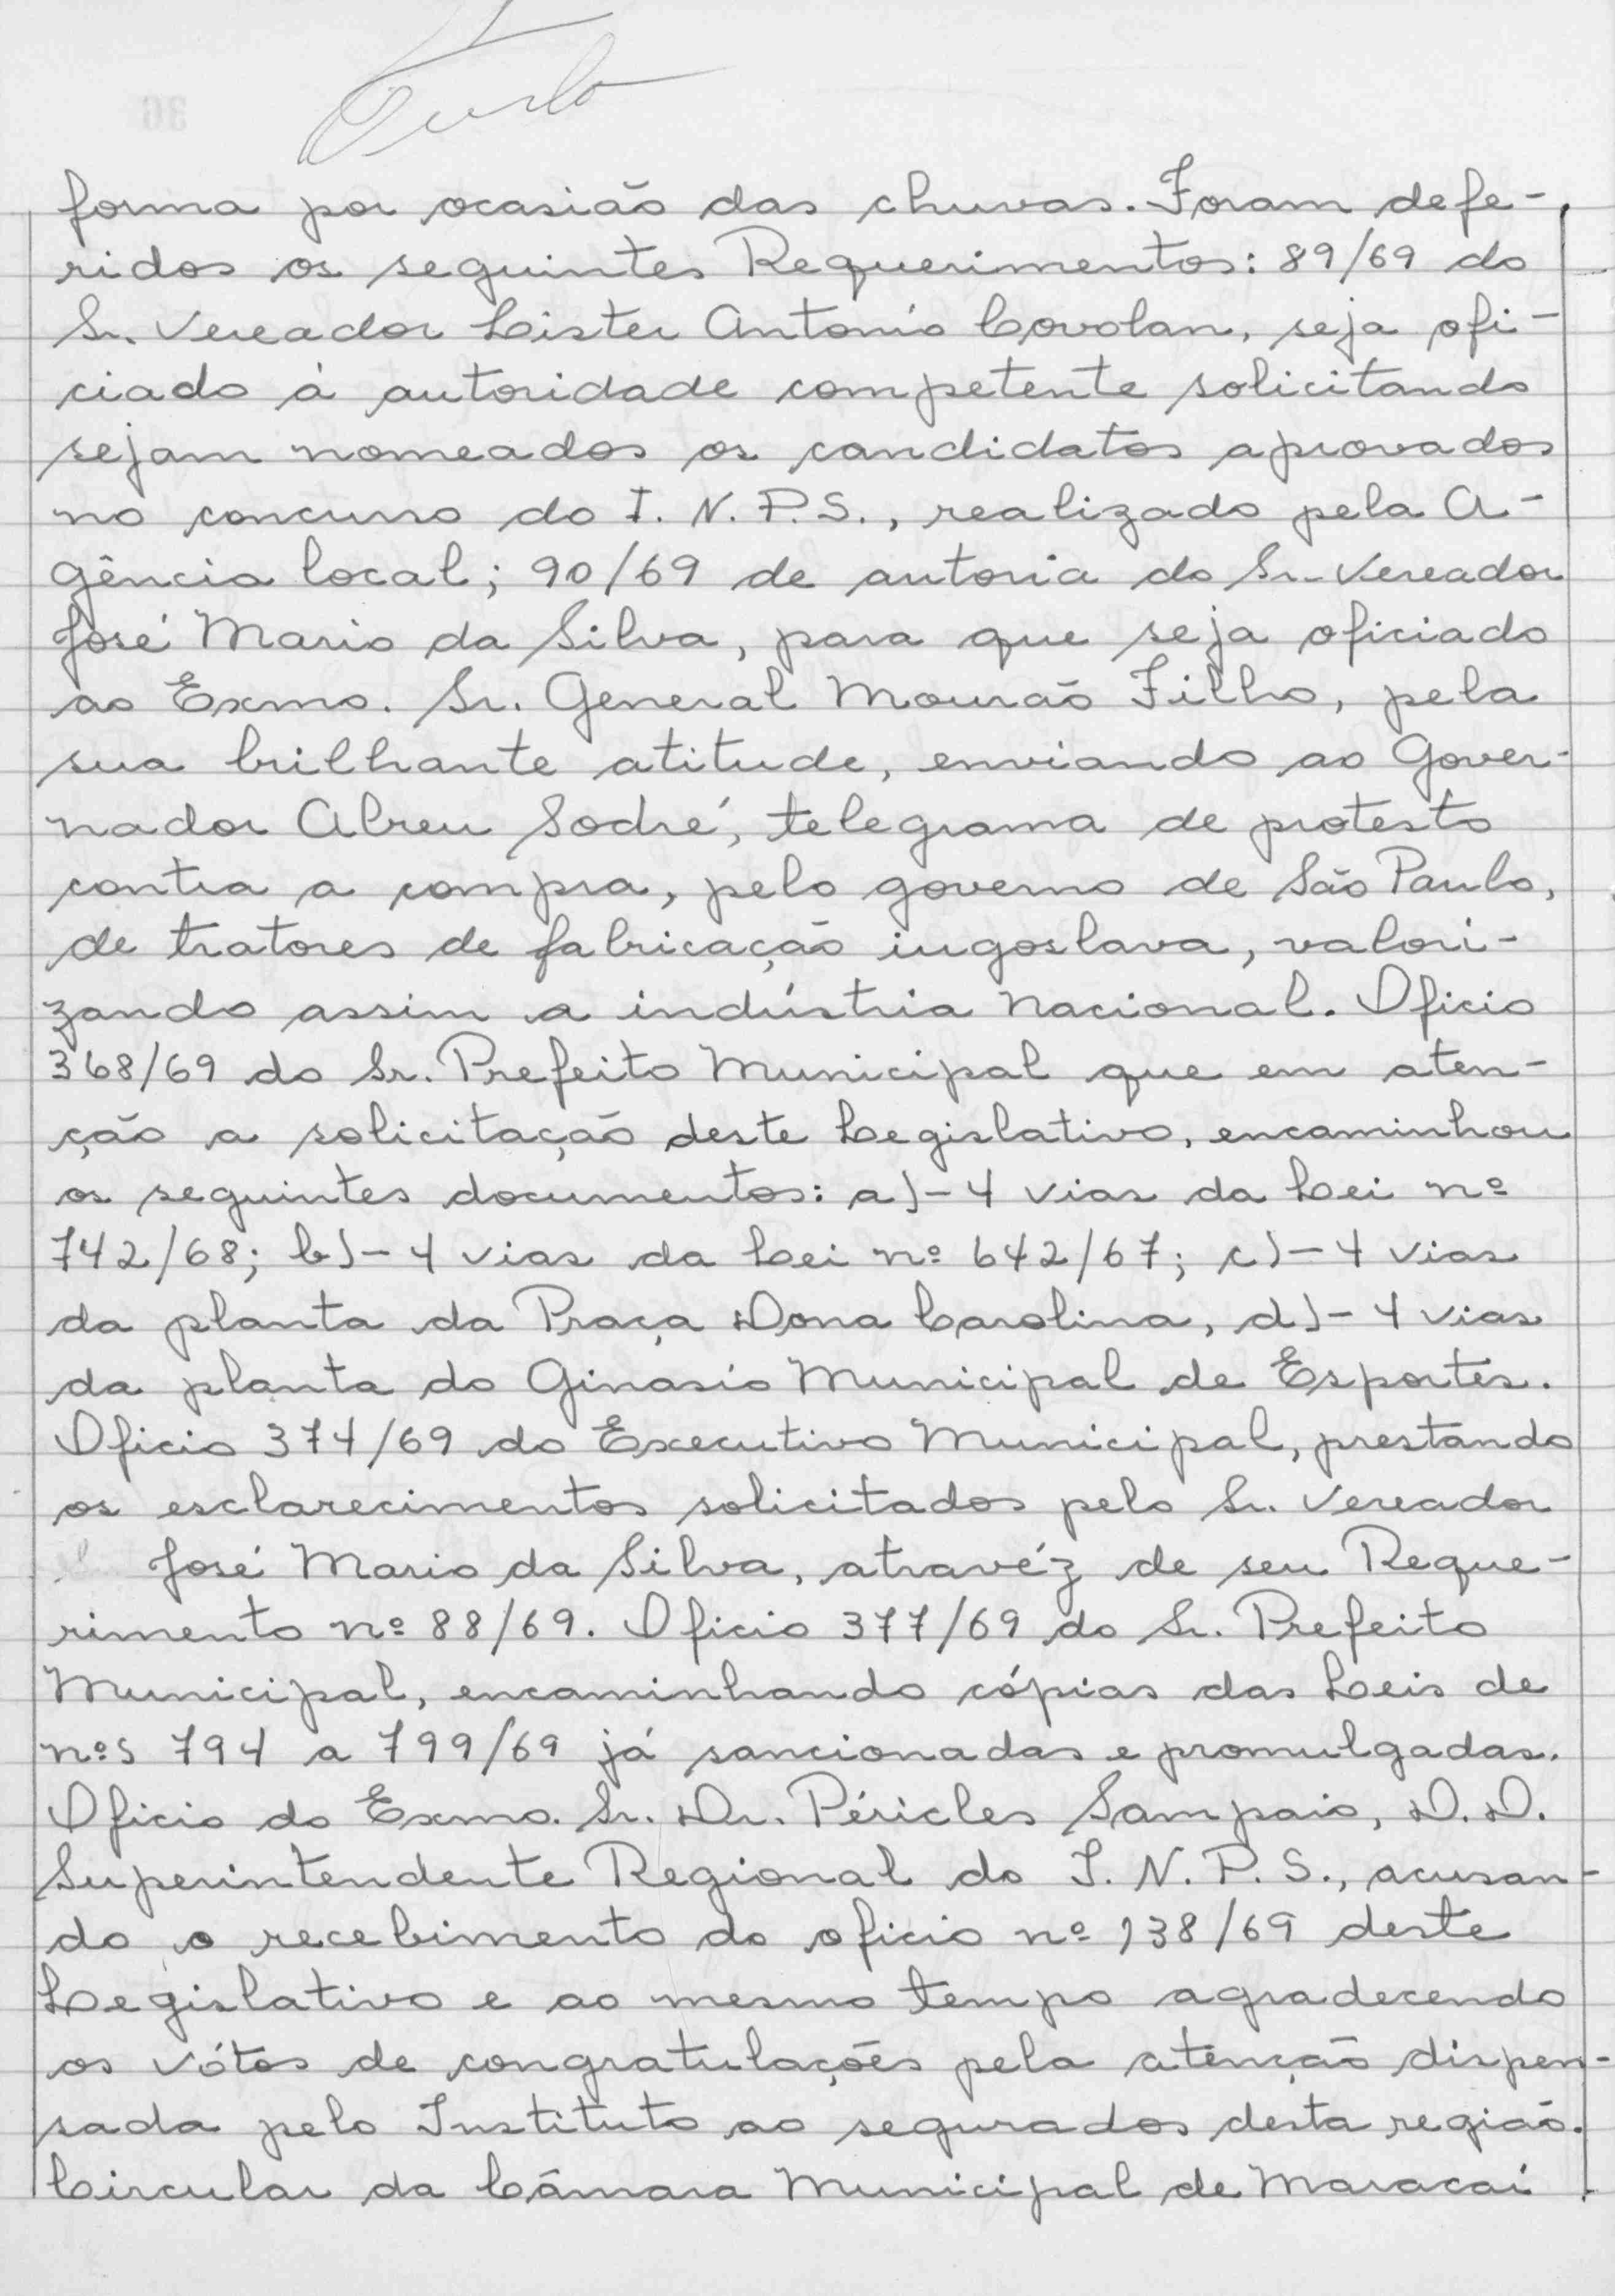 forma por ocasião das chuvas. Foram defe-
ridos os seguintes Requerimentos: 89/69 do
Sr. Vereador Lister Antonio Covolan, seja ofi-
ciado à autoridade competente solicitando
sejam nomeados os candidatos aprovados
no concurso do I. N. P. S., realizado pela A-
gência local; 90/69 de autoria do Sr. Vereador
José Mario da Silva, para que seja oficiado
ao Exmo. Sr. General Mourão Filho, pela
sua brilhante atitude, enviando ao Gover-
nador Abreu Sodré, telegrama de protesto
contra a compra, pelo governo de São Paulo,
de tratores de fabricação iugoslava, valori-
zando assim a indústria nacional. Oficio
368/69 do Sr. Prefeito Municipal que em aten-
ção a solicitação deste Legislativo, encaminhou
os seguintes documentos: a)- 4 vias da Lei nº
742/68; b)- 4 vias da Lei nº 642/67; c)- 4 vias
da planta da Praça Dona Carolina, d)- 4 vias
da planta do Ginasio Municipal de Esportes.
Oficio 374/69 do Executivo Municipal, prestando
os esclarecimentos solicitados pelo Sr. Vereador
José Mario da Silva, atravéz de seu Reque-
rimento nº 88/69. Oficio 377/69 do Sr. Prefeito
Municipal, encaminhando cópias das Leis de
nºs 794 a 799/69 já sancionadas e promulgadas.
Oficio do Exmo. Sr. Dr. Péricles Sampaio, D. D.
Superintendente Regional do I. N. P. S., acusan-
do o recebimento do oficio nº 138/69 deste
Legislativo e ao mesmo tempo agradecendo
os vótos de congratulações pela atenção dispen-
sada pelo Instituto ao segurados desta região.
Circular da Câmara Municipal de Maracaí